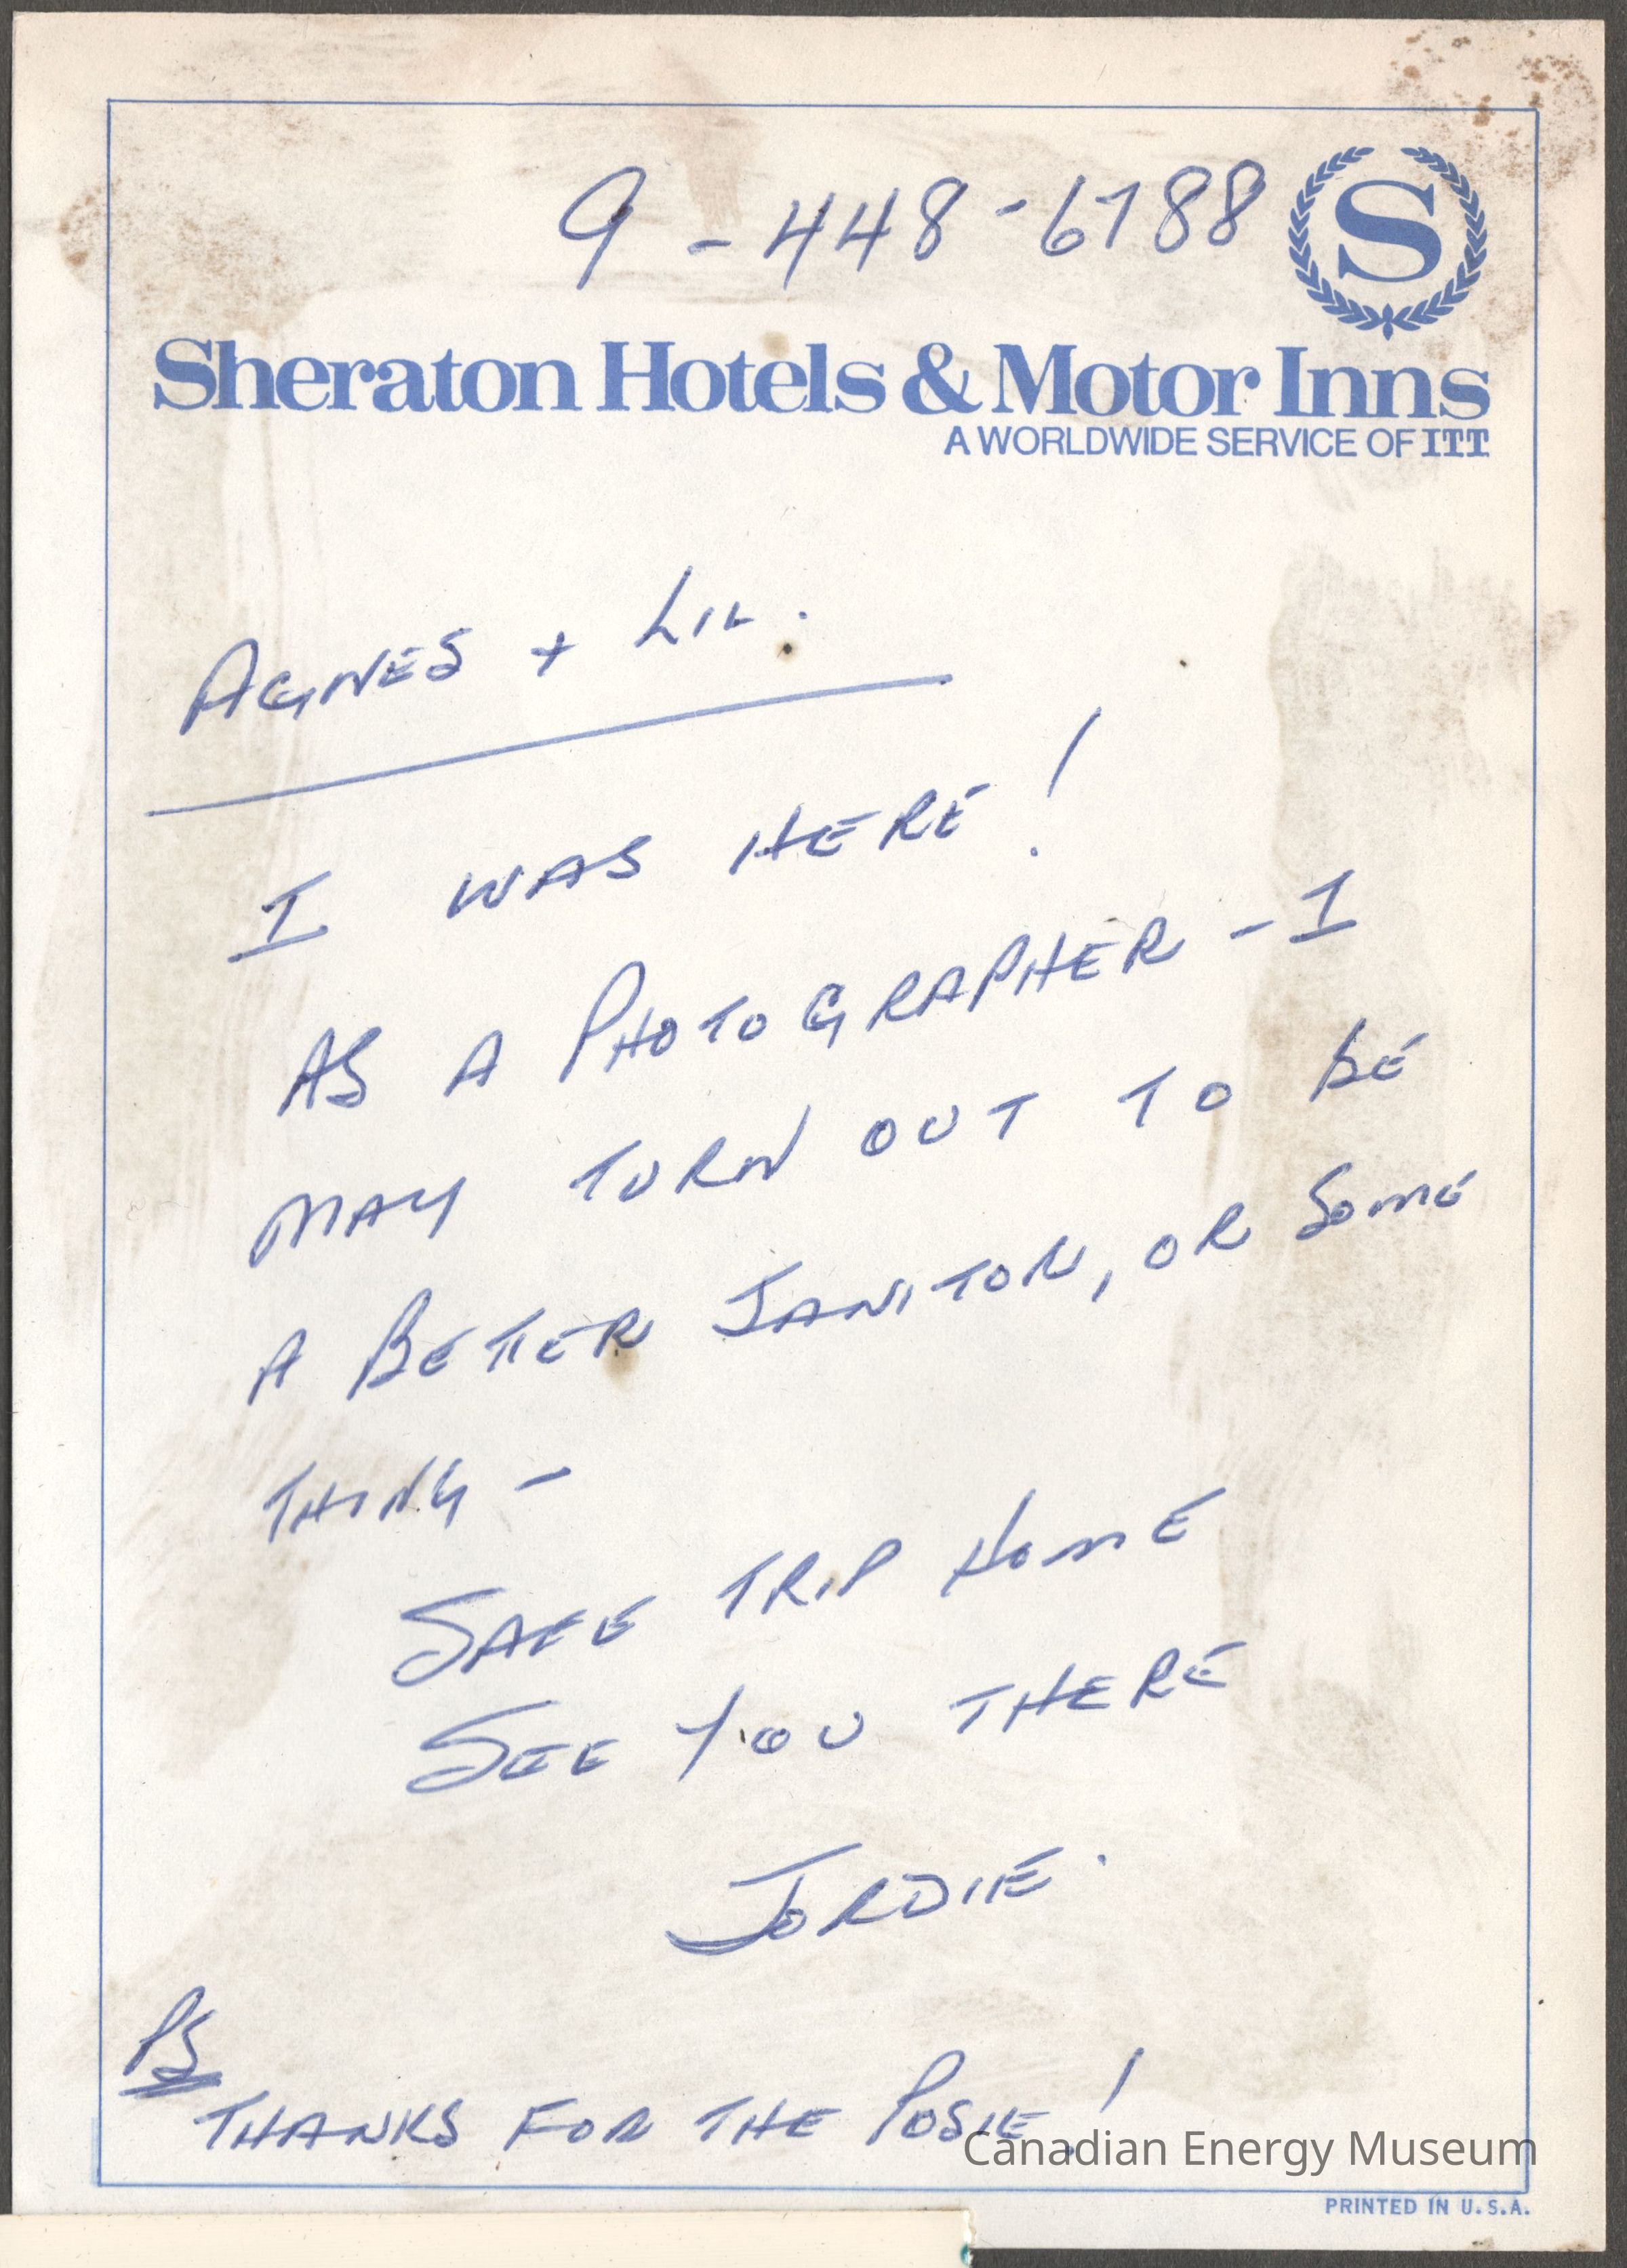 9 - 448-6788
S
Sheraton Hotels & Motor Inns
A WORLDWIDE SERVICE OF ITT
AGNES + LIL.
I WAS HERE!
AS A PHOTOGRAPHER - I
MAY TURN OUT TO BE
A BETTER JANITOR, OR SOME
THING -
SAFE TRIP HOME
SEE YOU THERE
JORDIE.
PS
THANKS FOR THE POSIE!
Canadian Energy Museum
PRINTED IN U.S.A.